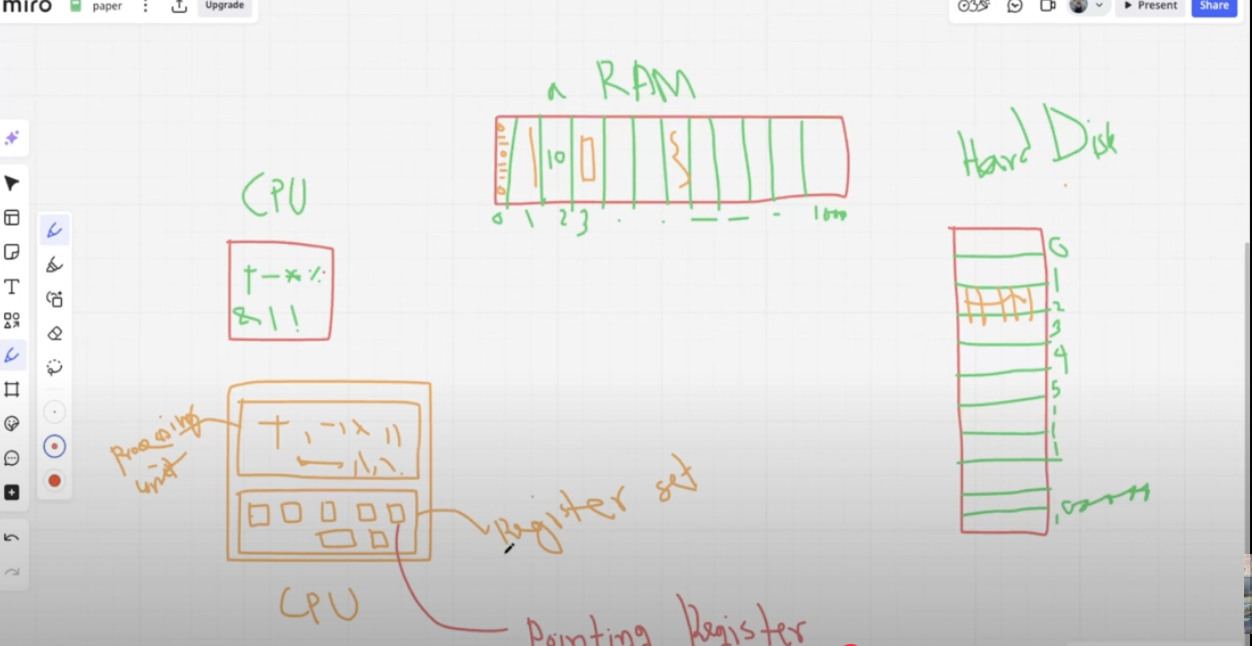 miro
paper
Upgrade
Present
Share
a RAM
Hard Disk
CPU
10
0 1 2 3 . . — — -
+ - * %
& | !
0
1
2
3
4
5
Processing
unit
Register set
CPU
Pointing Register